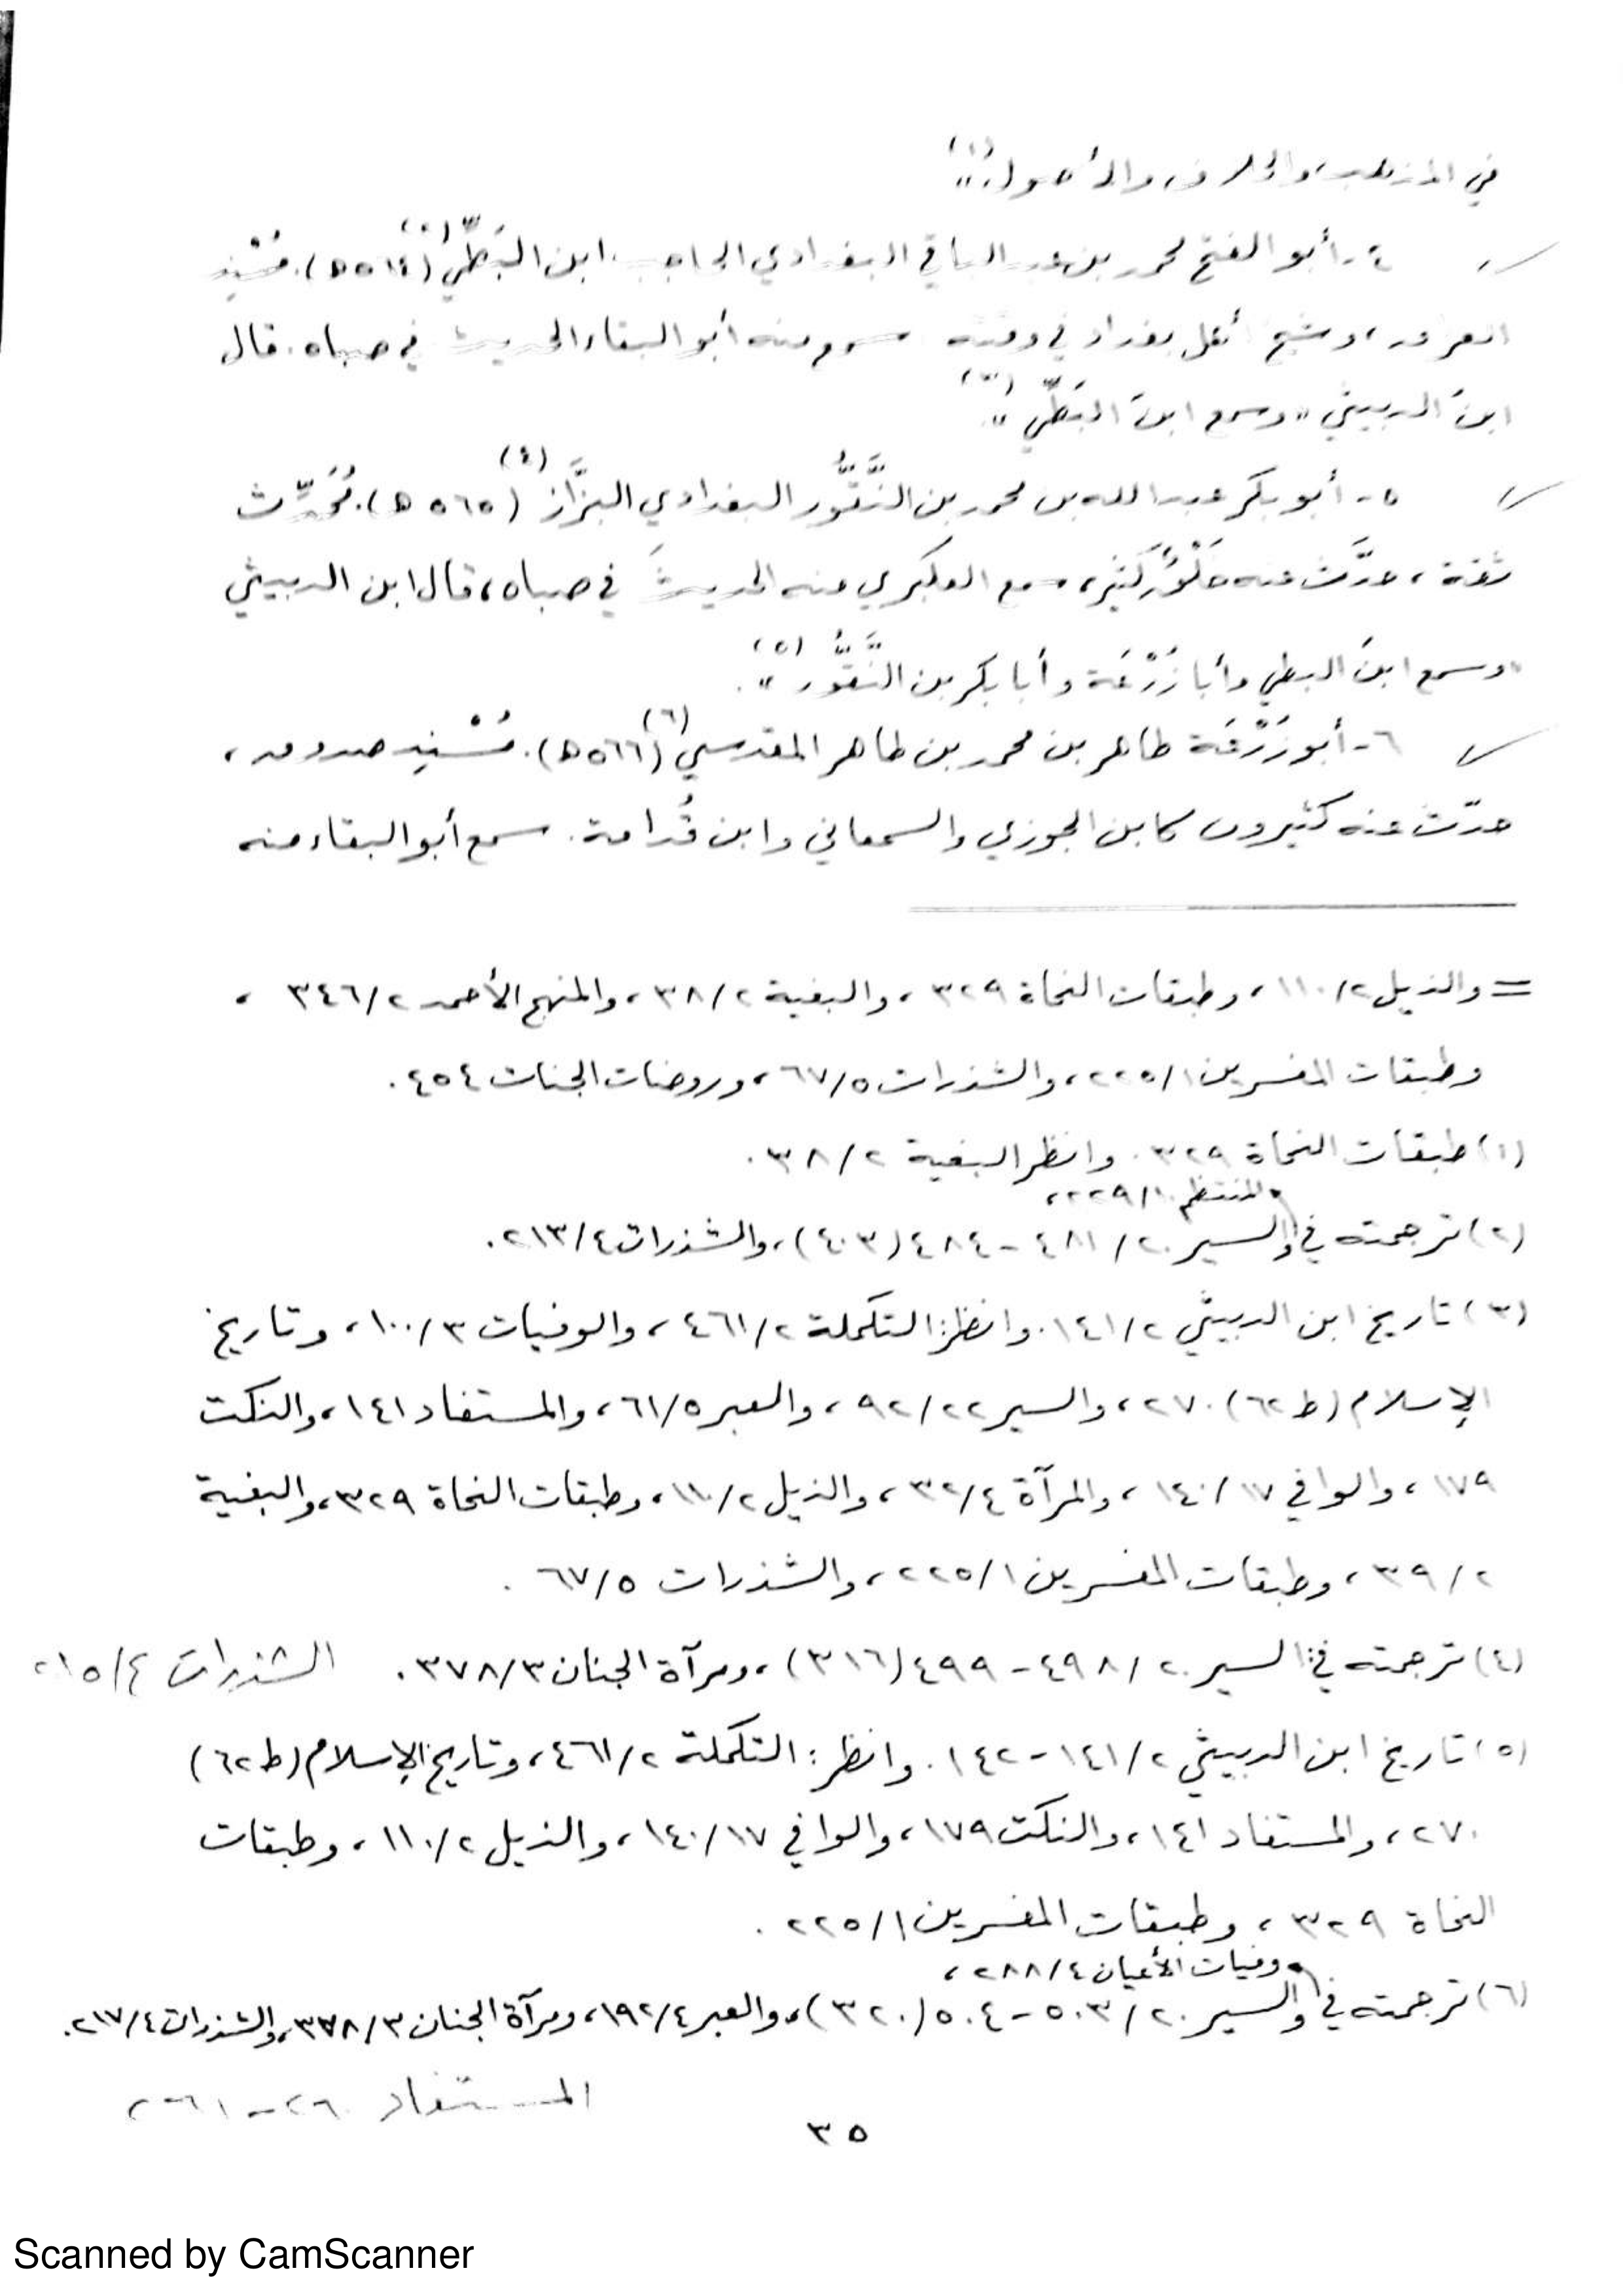 في المذهب، والخلاف، والأصول»(١).
٤- أبو الفتح محمد بن عبد الباقي البغدادي الحاجب ابن البَطِّي(٢) (٥٦٤ ه). مُسْنِد
العراق، وشيخ أهل بغداد في وقته سمع منه أبو البقاء الحديث في صباه. قال
ابنُ الدبيثي «وسمع ابنَ البَطِّي»(٣).
٥- أبو بكر عبد الله بن محمد بن النَّقُّور البغدادي البزَّاز(٤) (٥٦٥ ه). مُحَدِّث
ثقة، حدَّث عنه خَلْقٌ كَثير، سمع العكبري منه الحديثَ في صباه، قال ابن الدبيثي
«وسمع ابنَ البطي وأبا زُرْعَة وأبا بكر بن النَّقُّور»(٥).
٦- أبو زُرْعَة طاهر بن محمد بن طاهر المقدسي(٦) (٥٦٦ ه). مُسْنِد صدوق،
حدّث عنه كثيرون كابن الجوزي والسمعاني وابن قُدامة. سمع أبو البقاء منه
= والذيل ٢/١١٠، وطبقات النحاة ٣٢٩، والبغية ٢/٣٨، والمنهج الأحمد ٢/٣٤٦،
وطبقات المفسرين ١/٢٢٥، والشذرات ٥/٦٧، وروضات الجنات ٤٥٤.
(١) طبقات النحاة ٣٢٩. وانظر البغية ٢/٣٨.
المنتظم ١٠/٢٢٩،
(٢) ترجمته في والسير ٢٠/٤٨١-٤٨٤ (٤٠٣)، والشذرات ٤/٢١٣.
(٣) تاريخ ابن الدبيثي ٢/١٤١. وانظر: التكملة ٢/٤٦١، والوفيات ٣/١٠٠، وتاريخ
الإسلام (ط ٦٢) ٢٧٠، والسير ٢٢/٩٢، والعبر ٥/٦١، والمستفاد ١٤١، والنكت
١٧٩، والوافي ١٧/١٤٠، والمرآة ٤/٣٢، والذيل ٢/١١٠، وطبقات النحاة ٣٢٩، والبغية
٢/٣٩، وطبقات المفسرين ١/٢٢٥، والشذرات ٥/٦٧.
(٤) ترجمته في: السير ٢٠/٤٩٨-٤٩٩ (٣١٦)، ومرآة الجنان ٣/٣٧٨. الشذرات ٤/٢١٥
(٥) تاريخ ابن الدبيثي ٢/١٤١-١٤٢. وانظر: التكملة ٢/٤٦١، وتاريخ الإسلام (ط ٦٢)
٢٧٠، والمستفاد ١٤١، والنكت ١٧٩، والوافي ١٧/١٤٠، والذيل ٢/١١٠، وطبقات
النحاة ٣٢٩، وطبقات المفسرين ١/٢٢٥.
وفيات الأعيان ٤/٢٨٨،
(٦) ترجمته في والسير ٢٠/٥٠٣-٥٠٤ (٣٢٠)، والعبر ٤/١٩٢، ومرآة الجنان ٣/٣٧٨، والشذرات ٤/٢١٧.
المستفاد ٢٦٠-٢٦١
٣٥
Scanned by CamScanner